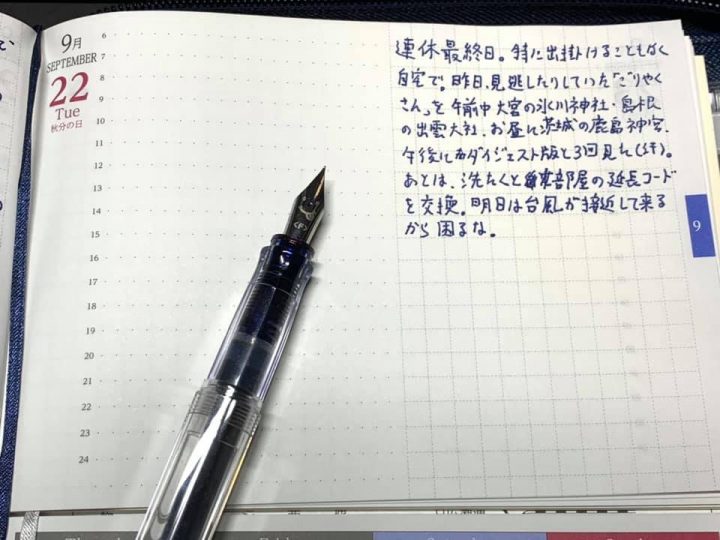 9月
SEPTEMBER
22
Tue
秋分の日
6
7
8
9
10
11
12
13
14
15
16
17
18
19
20
21
22
23
24
連休最終日。特に出掛けることもなく
自宅で。昨日、見逃したりしていた「ごりやく
さん」を午前中大宮の氷川神社・島根
の出雲大社、お昼に茨城の鹿島神宮、
午後にもダイジェスト版と3回見た(汗)。
あとは、洗たくと部屋の延長コード
を交換。明日は台風が接近して来る
から困るな。
9
F